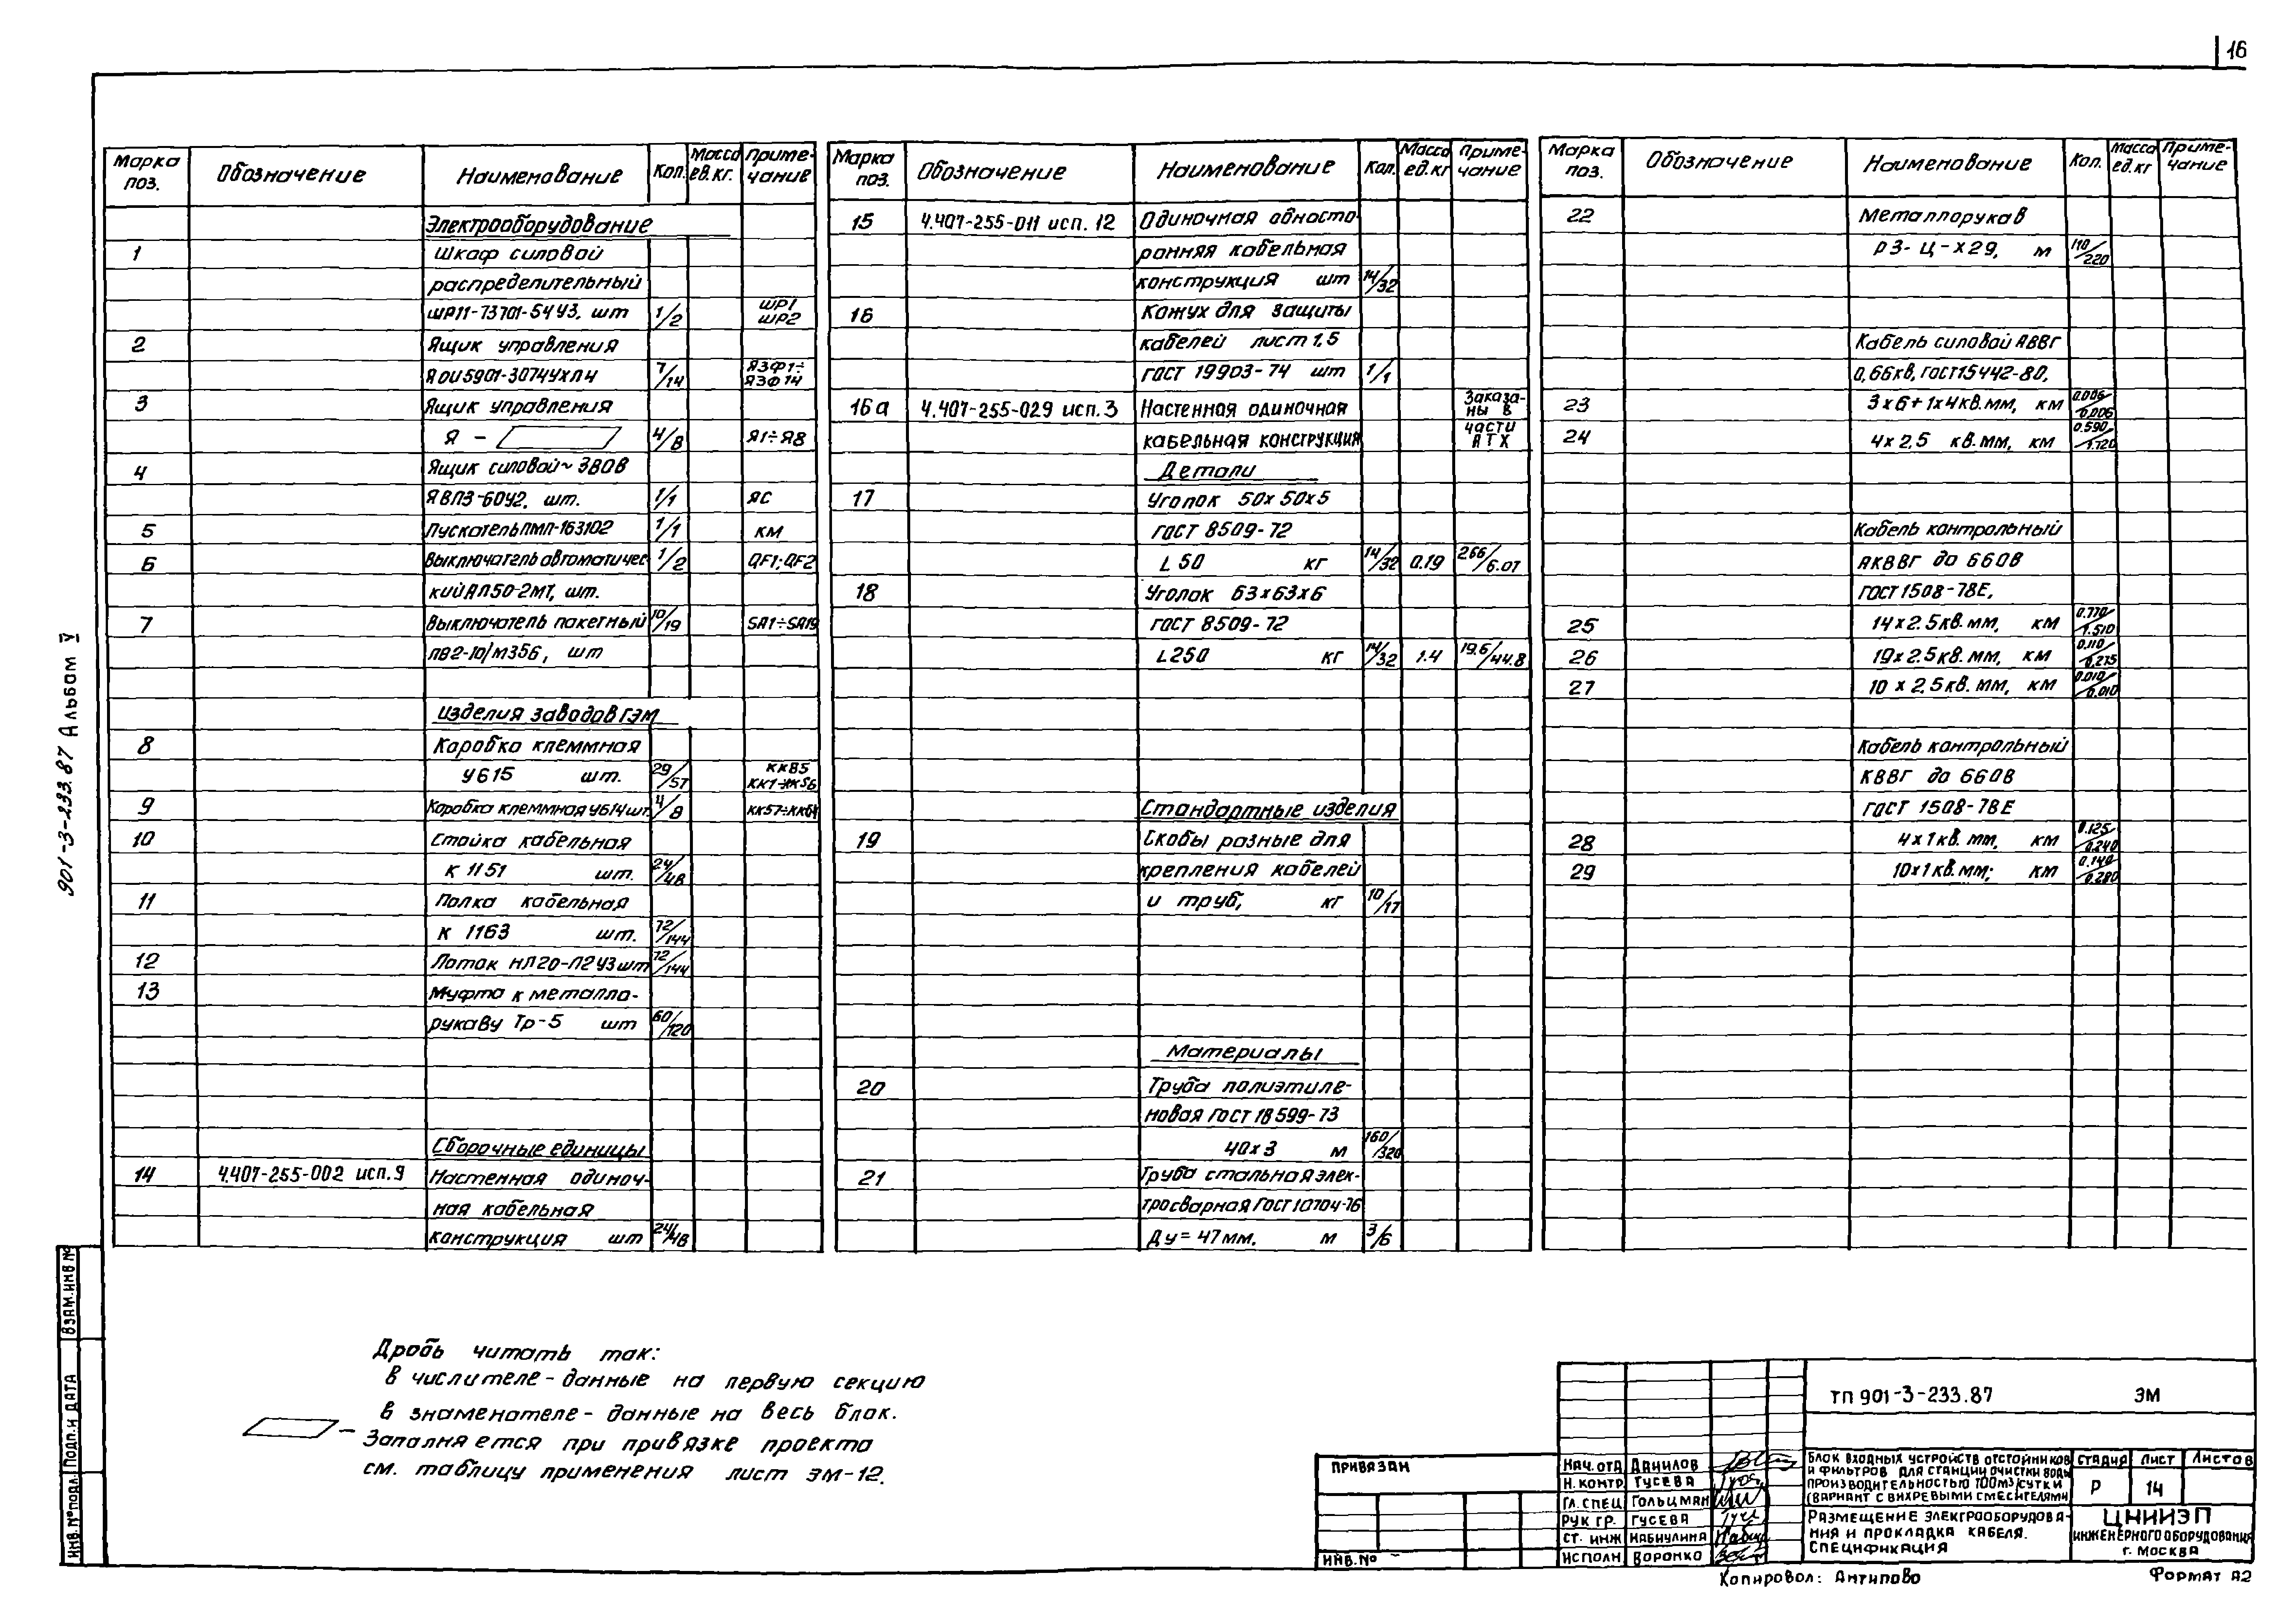 16
Марка поз. Обозначение Наименование Кол. Масса ед. кг. Примечание
Электрооборудование
1 Шкаф силовой
распределительный
ШР11-73701-54У3, шт 1/2 ШР1 ШР2
2 Ящик управления
ЯОУ5901-3074УХЛ4 7/14 ЯЗФ1÷ ЯЗФ14
3 Ящик управления
Я - 4/8 Я1÷Я8
4 Ящик силовой ~ 380В
ЯВПЗ-60У2, шт. 1/1 ЯС
5 Пускатель ПМЛ-163102 1/1 КМ
6 Выключатель автоматичес 1/2 QF1; QF2
кий АП50-2МТ, шт.
7 Выключатель пакетный 10/19 SA1÷SA19
ПВ2-10/М356, шт
Изделия заводов ГЭМ
8 Коробка клеммная
У615 шт. 29/57 КК85 КК1÷КК56
9 Коробка клеммная У614 шт. 4/8 КК57÷КК64
10 Стойка кабельная
К 1151 шт. 24/48
11 Полка кабельная
К 1163 шт. 72/144
12 Лоток НЛ20-П2У3 шт 72/144
13 Муфта к металло-
рукаву Тр-5 шт 60/120
Сборочные единицы
14 4.407-255-002 исп.9 Настенная одиноч-
ная кабельная
конструкция шт 24/48
Марка поз. Обозначение Наименование Кол. Масса ед. кг Примечание
15 4.407-255-011 исп. 12 Одиночная односто
ронняя кабельная
конструкция шт 14/32
16 Кожух для защиты
кабелей лист 1,5
ГОСТ 19903-74 шт 1/1
16а 4.407-255-029 исп. 3 Настенная одиночная Заказа-ны в
кабельная конструкция части АТХ
Детали
17 Уголок 50х50х5
ГОСТ 8509-72
L 50 кг 14/32 0.19 2.66/6.07
18 Уголок 63х63х6
ГОСТ 8509-72
L250 кг 14/32 1.4 19.6/44.8
Стандартные изделия
19 Скобы разные для
крепления кабелей
и труб, кг 10/17
Материалы
20 Труба полиэтиле-
новая ГОСТ 18599-73
40х3 м 160/320
21 Труба стальная элек-
тросварная ГОСТ 10704-76
Ду = 47мм. м 3/6
Марка поз. Обозначение Наименование Кол. Масса ед. кг Примечание
22 Металлорукав
РЗ-Ц-Х29, м 110/220
Кабель силовой АВВГ
0,66кв, ГОСТ15442-80,
23 3х6+1х4кв.мм, км 0.006/0.006
24 4х2,5 кв.мм, км 0.590/1.120
Кабель контрольный
АКВВГ до 660В
ГОСТ 1508-78Е,
25 14х2.5кв.мм, км 0.770/1.510
26 19х2.5кв.мм, км 0.110/0.235
27 10х2,5кв.мм, км 0.010/0.010
Кабель контрольный
КВВГ до 660В
ГОСТ 1508-78Е
28 4х1кв.мм, км 0.125/0.240
29 10х1кв.мм; км 0.140/0.280
901-3-233.87 Альбом V
Взам.инв № Подп. и дата Инв.№ подл.
Дробь читать так:
в числителе - данные на первую секцию
в знаменателе - данные на весь блок.
— Заполняется при привязке проекта
см. таблицу применения лист ЭМ-12.
Привязан
Инв.№
Нач.отд Данилов
Н.контр Гусева
Гл.спец Гольцман
Рук гр. Гусева
Ст. инж Набиулина
Исполн Воронко
ТП 901-3-233.87 ЭМ
Блок входных устройств отстойников
и фильтров для станции очистки воды
производительностью 700м3/сутки
(вариант с вихревыми смесителями)
Стадия Лист Листов
Р 14
Размещение электрооборудова-
ния и прокладка кабеля.
Спецификация
ЦНИИЭП
инженерного оборудования
г. Москва
Копировал: Антипово Формат А2